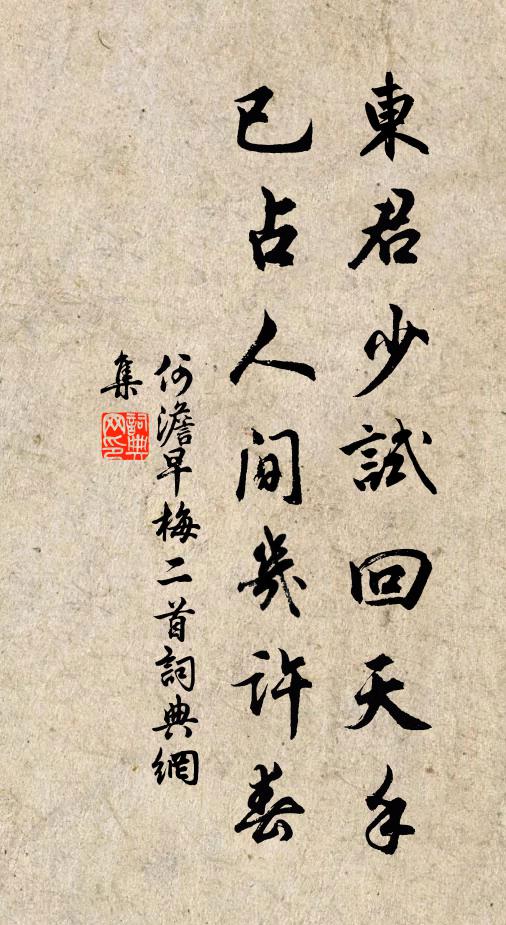 東君少試回天手
已占人間幾許春
何澹早梅二首詞典網
集
詞典网印